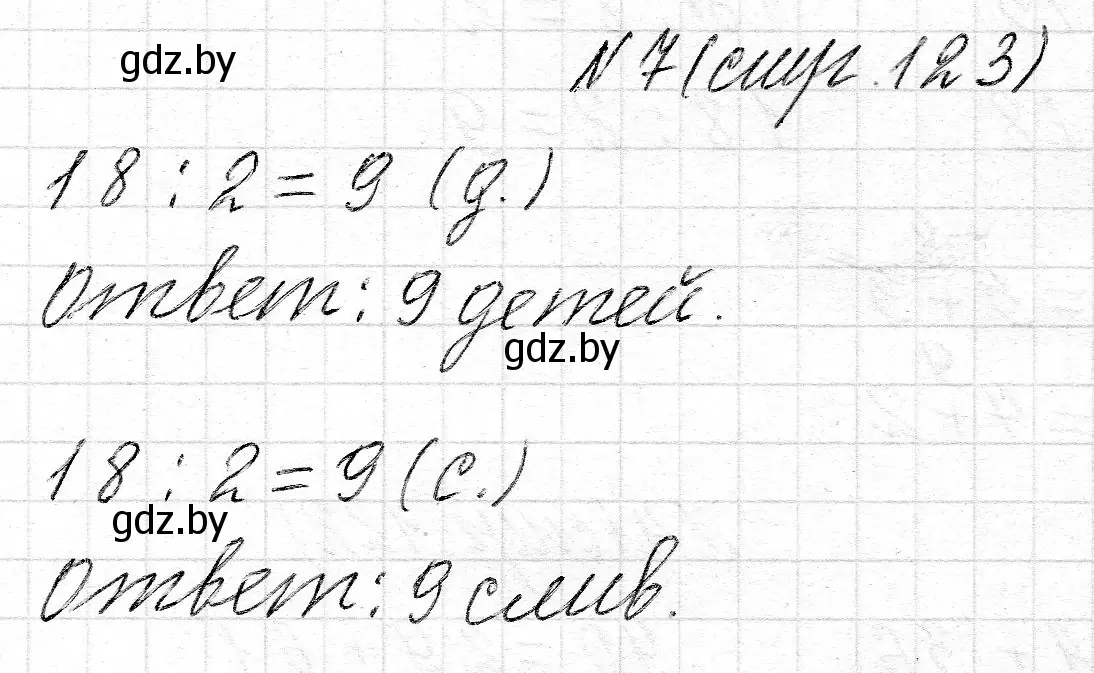 gdz.by
N 7 (стр. 123)
18 : 2 = 9 (д.)
Ответ: 9 детей.
gdz.by
18 : 2 = 9 (с.)
gdz.by
Ответ: 9 слив.